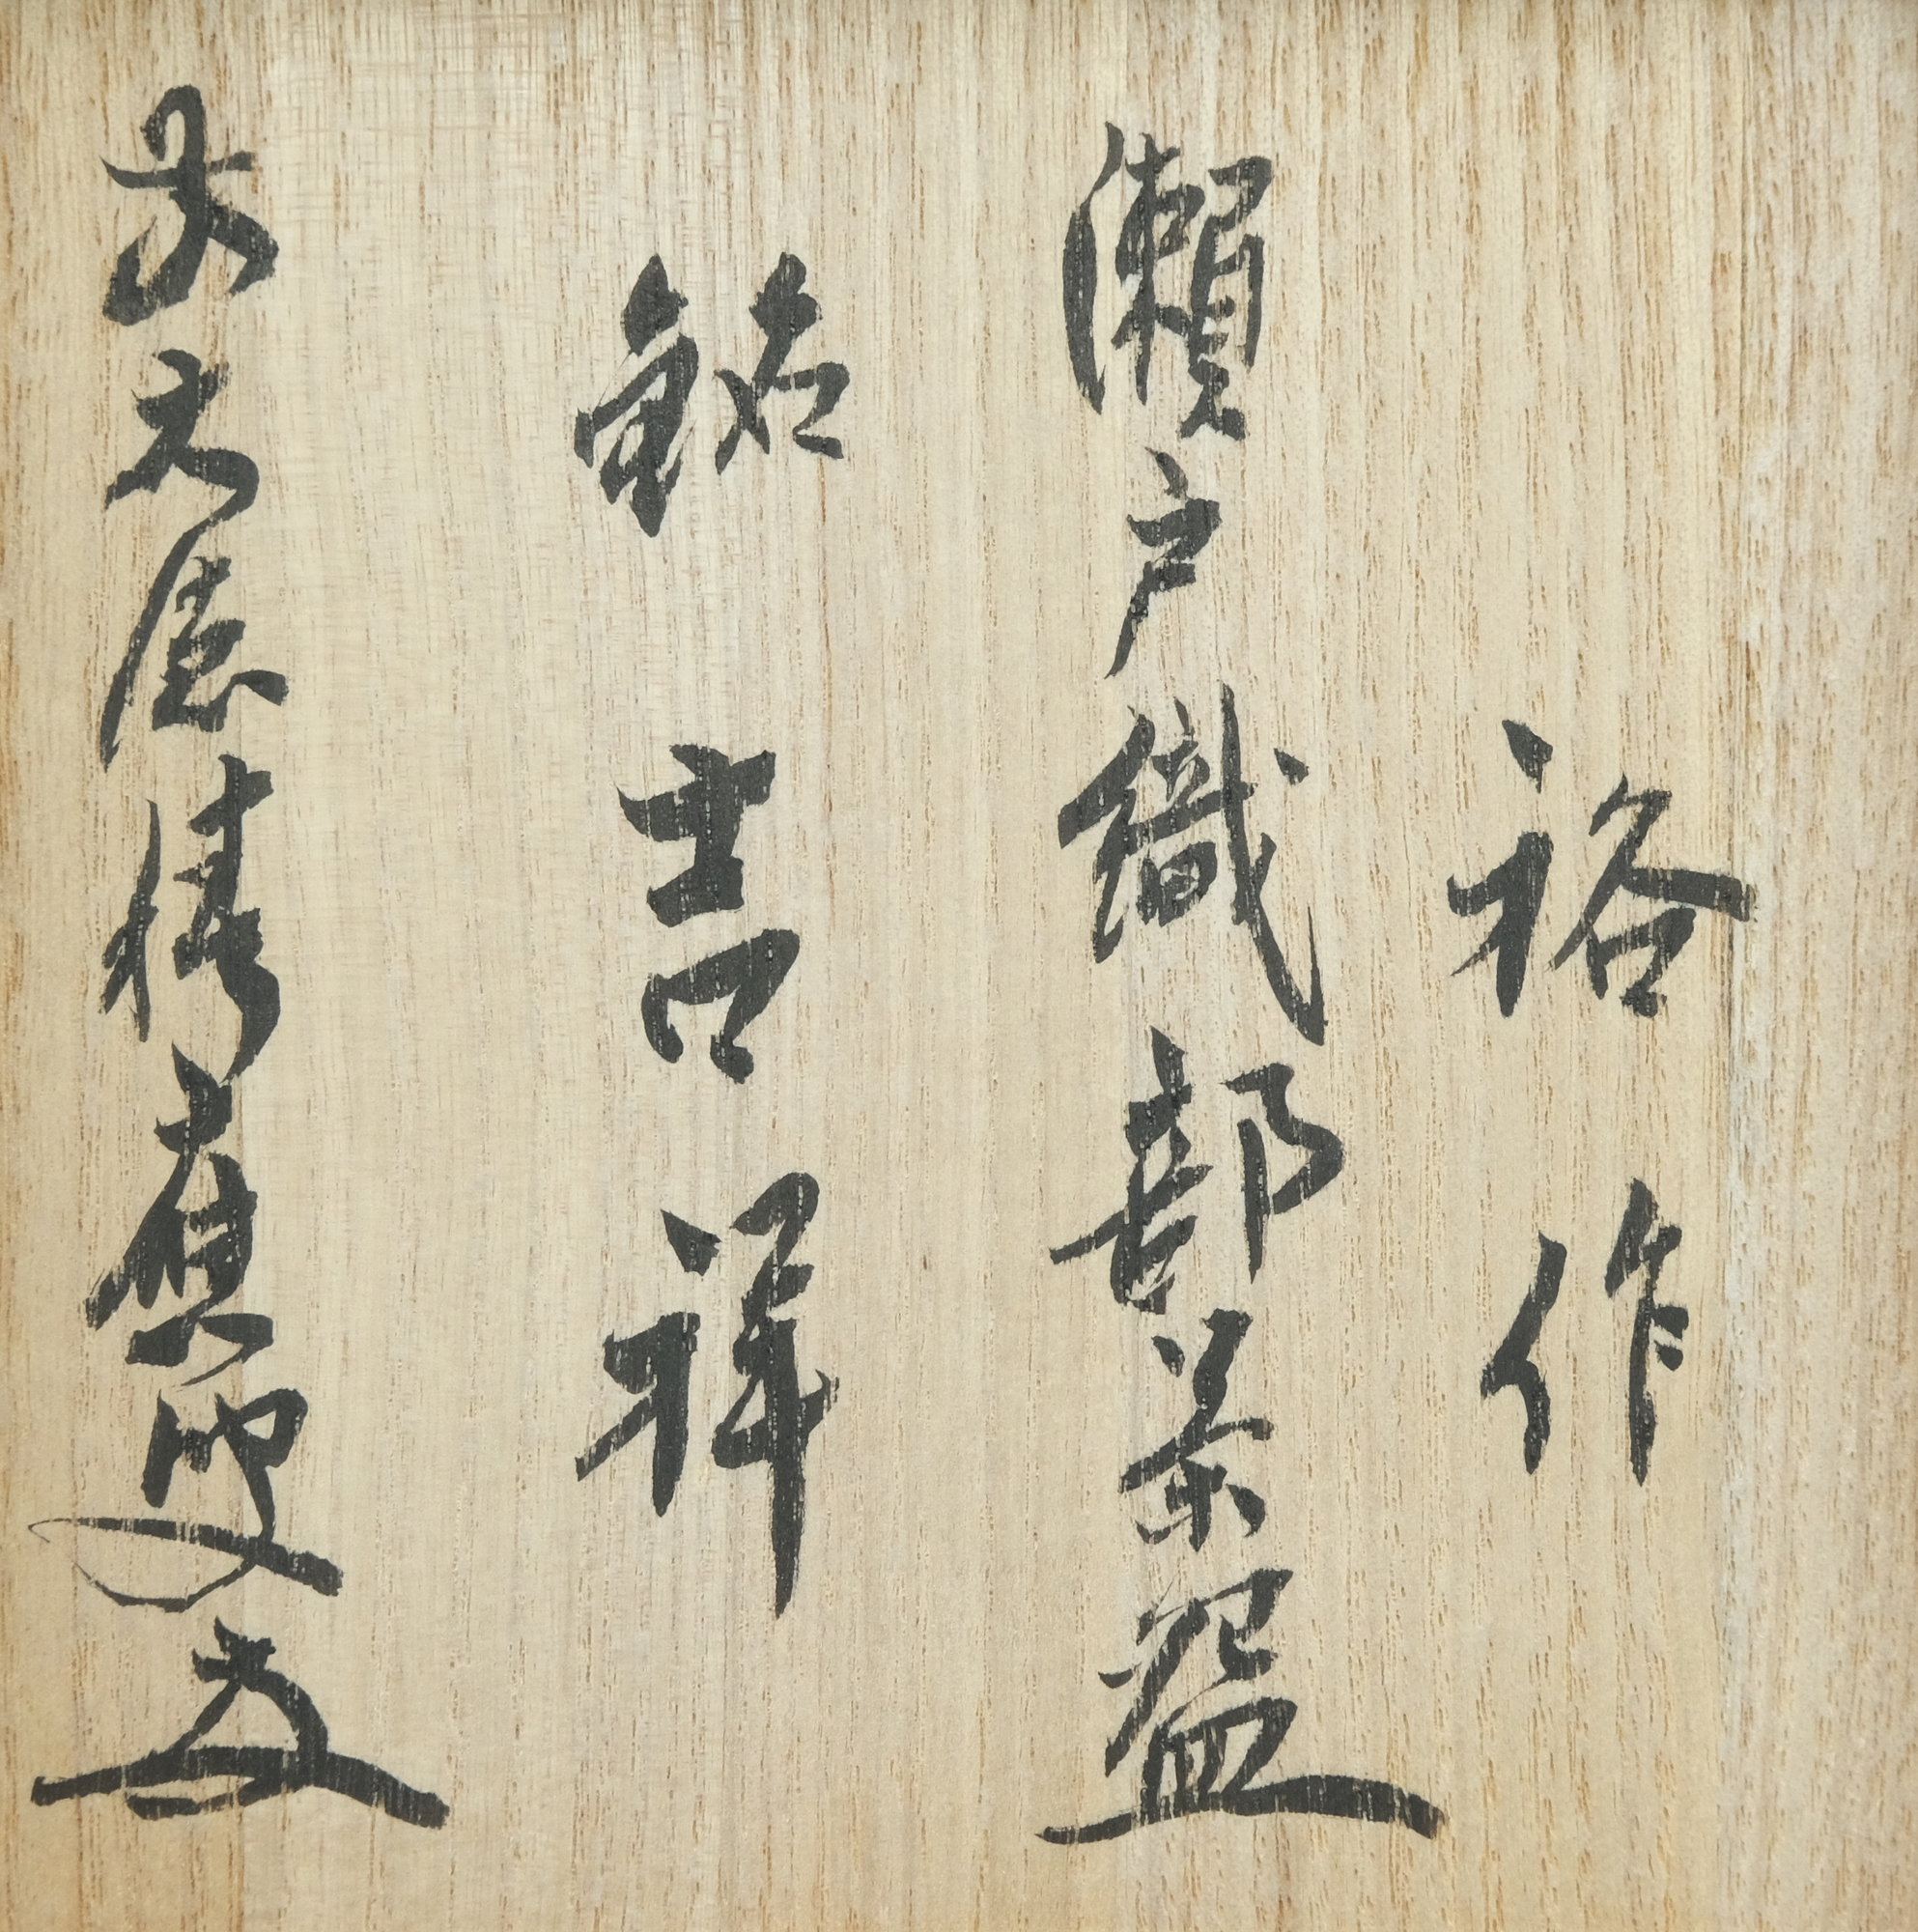 裕作
瀬戸織部茶盌
銘 吉祥
前大徳積應叟